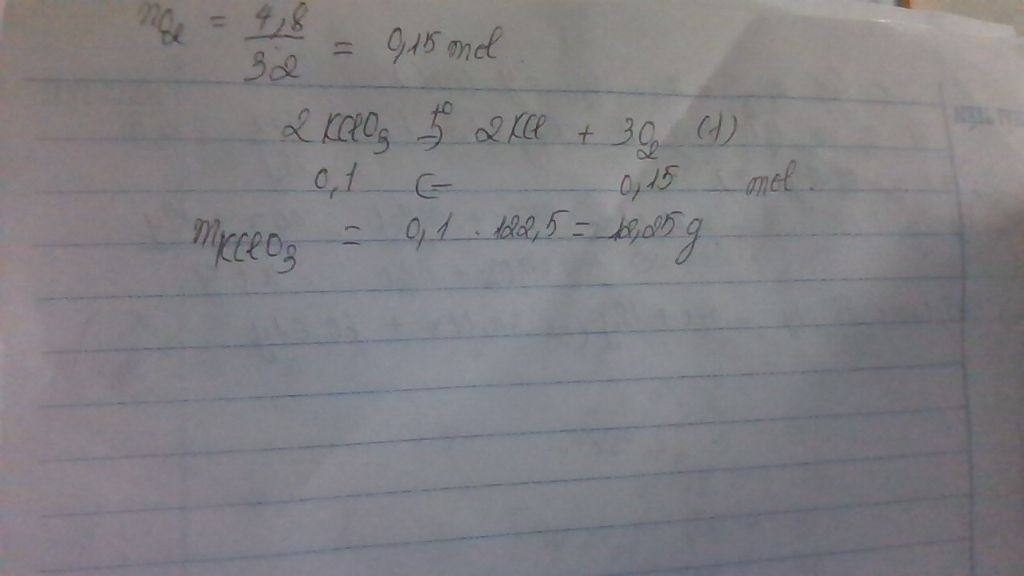 nO2 = 4,8/32 = 0,15 mol.
2KClO3 t° → 2KCl + 3O2 (1)
0,1 ← 0,15 mol.
mKClO3 = 0,1 . 122,5 = 12,25g